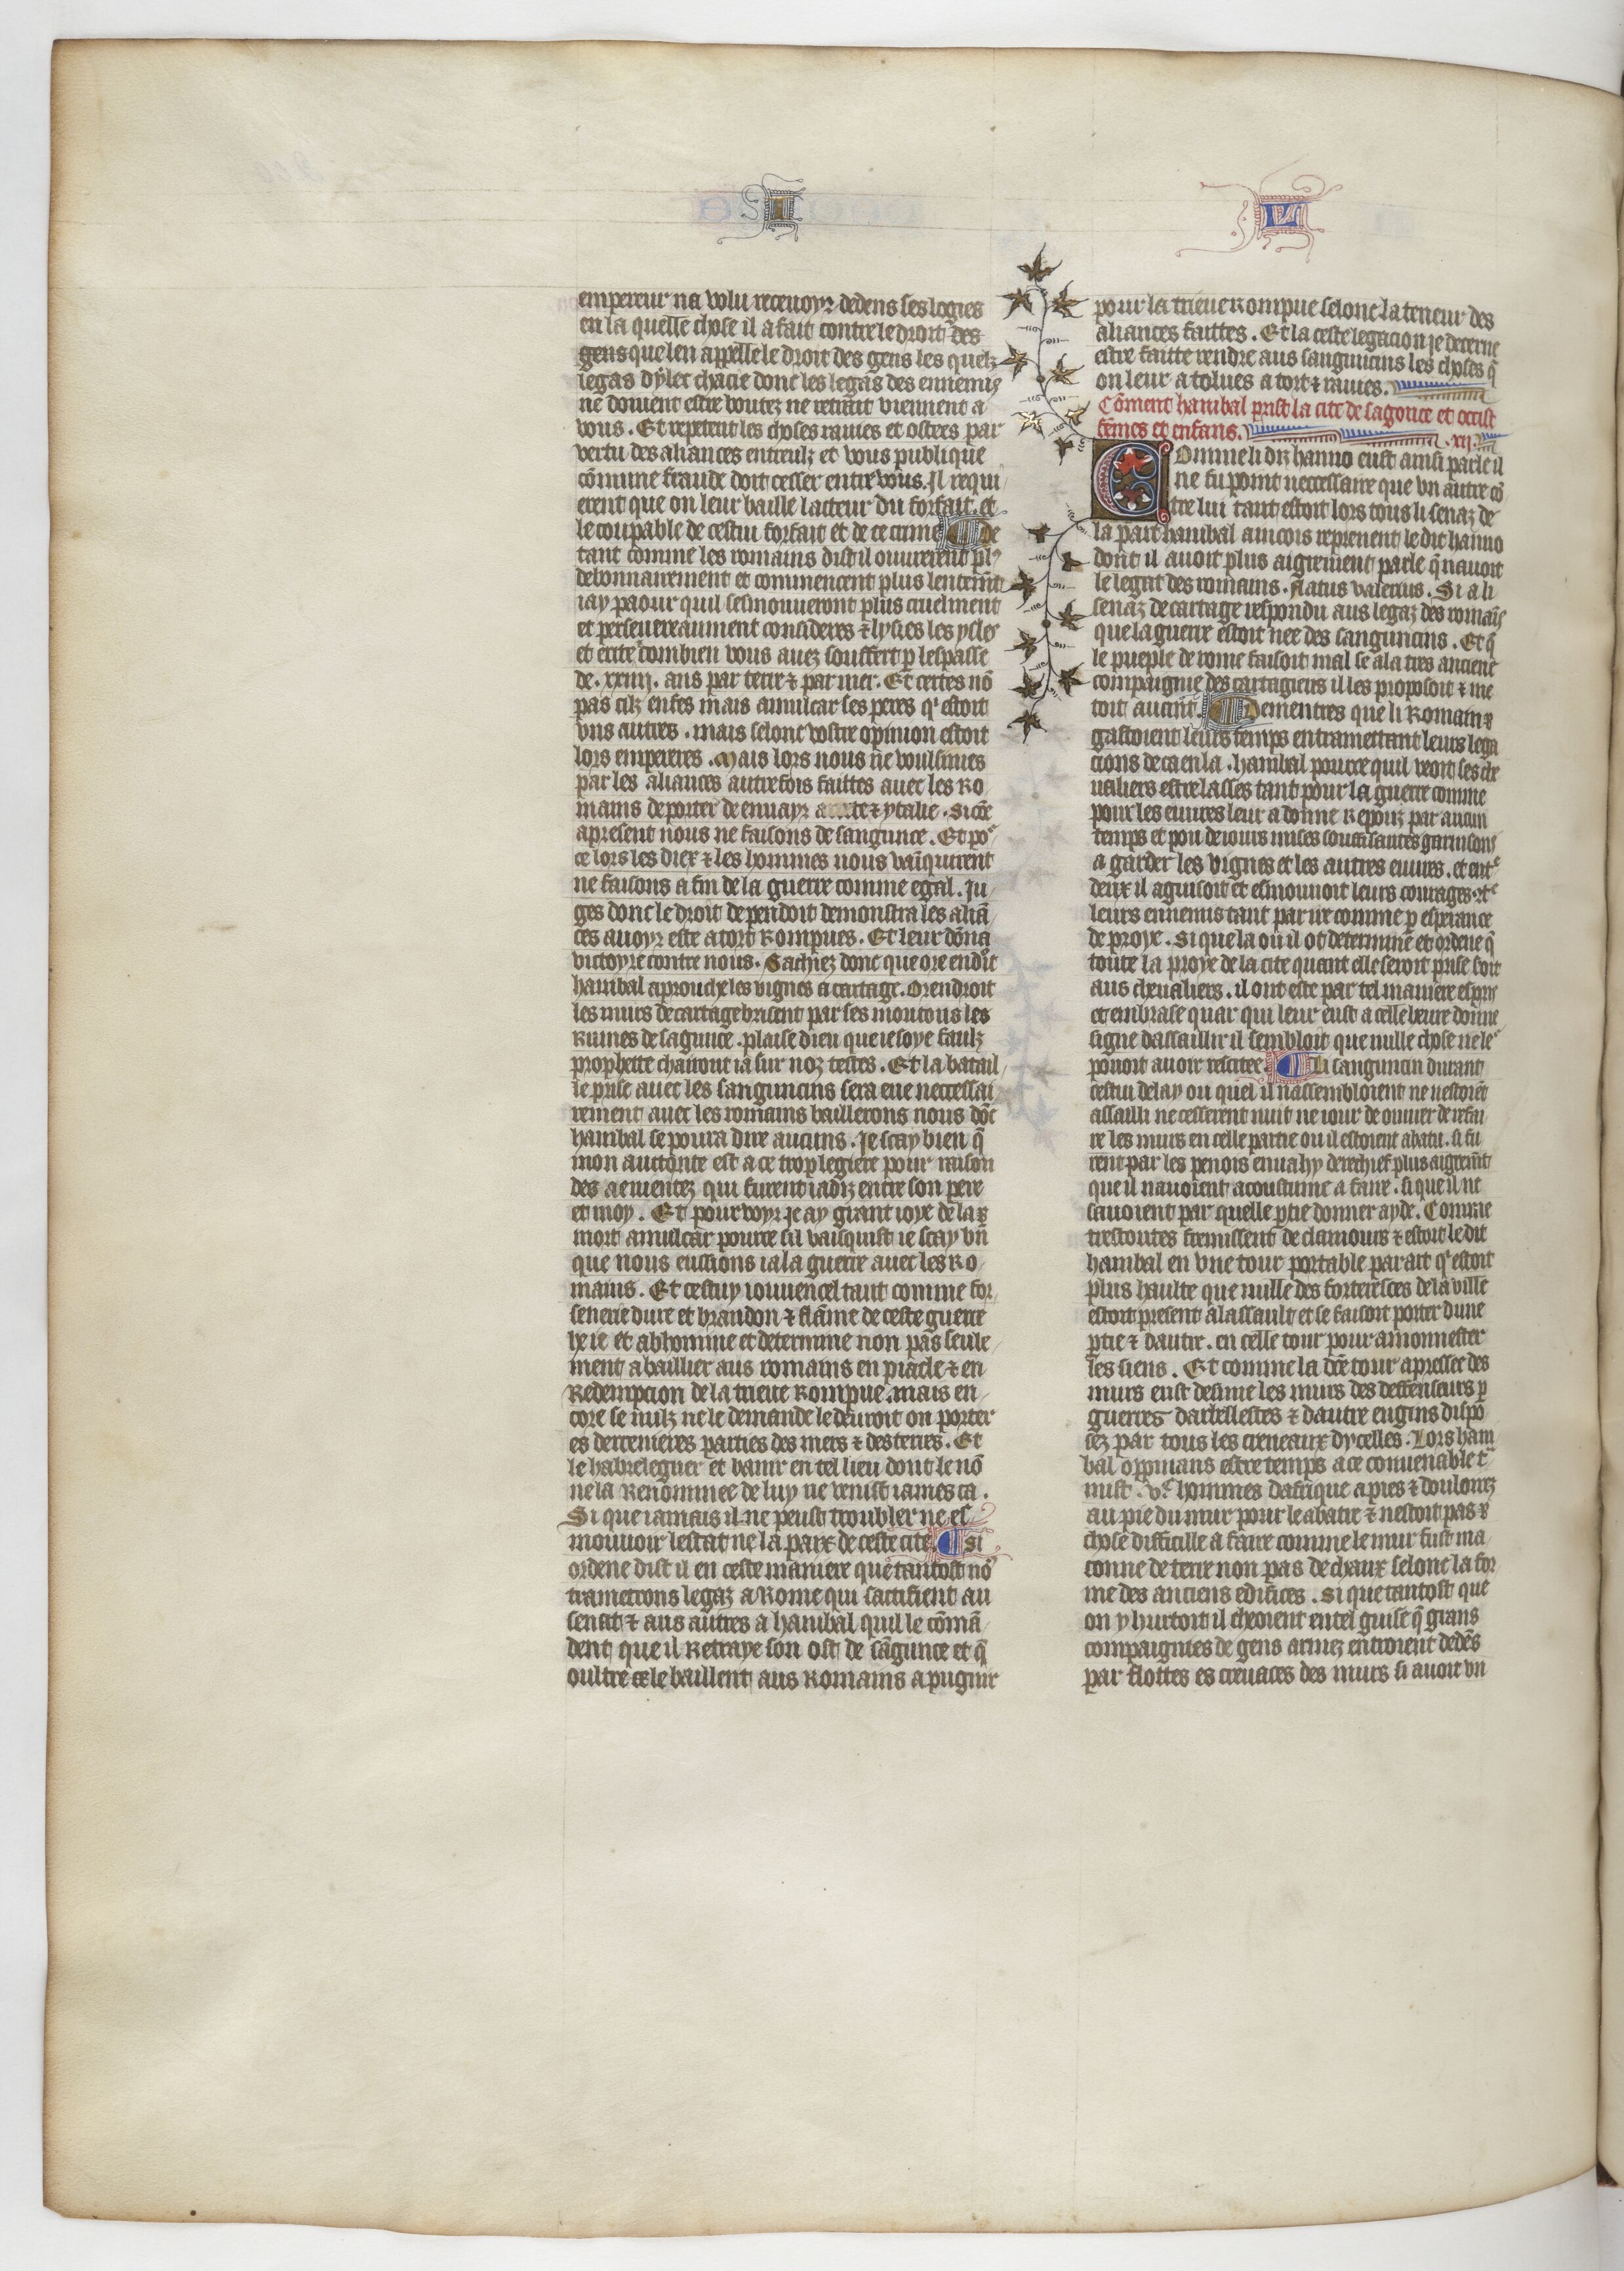 I L
empereur na volu recevoyr dedens ses loges
en la quelle chose il a fait contre le droit des
gens que len appelle le droit des gens les quelz
legas dylec chacie donc les legas des ennemis
ne doivent estre boutez ne retrait viennent a
vous. Et repetent les choses ravies et ostees par
vertu des aliances entreulz et vous publique
cõmune fraude doit cesser entre vous. Il requi
erent que on leur baille lacteur du forfait. et
le coupable de cestui forfait et de ce crime ¶ De
tant comme les romains dist il ouvrerent pl9
debonnairement et commencent plus lentemẽt
iay paour quil sesmouveront plus cruelment
et
et ecite combien vous avez souffert p lespasse
de .xxiiii. ans par terre & par mer. Et certes nõ
pas cilz enfes mais amilcar ses peres q' estoit
uns autres. mais selonc vostre opinion estoit
lors empereres. Mais lors nous ne voulsimes
par les aliances autrefois faittes avec les Ro
mains de porter de envayr & ytalie. Si cõe
apresent nous ne faisons de sangunce. Et po'
ce lors les diex & les hommes nous vainquirent
ne faisons a fin de la guerre comme egal. Ju
ges donc le droit de pendoit demonstra les aliã
ces avoyr este a tort Rompues. Et leur dõna
victoyre contre nous. Sachiez donc que orendroit
hanibal aprouche les vignes a cartage. Orendroit
les murs de cartage brisent par ses moutons les
Ruines de sagunce. plaise dieu que ie soye faulz
prophette charront ia sur noz testes. Et la batail
le prise avec les sanguncins sera eue neccessai
rement avec les romains baillerons nous dõc
hanibal se poura dire aucuns. Je scay bien q̃
mon auctorite est a ce trop legiere pour raison
des aementez qui furent iadiz entre son pere
et moy. Et pour voyr je ay grant ioye de la
mort amilcar pource sil vaisquist ie scay bñ
que nous eussions ia la guerre avec les Ro
mains. Et cestuy iouvencel tant comme for
senerie dure et brandon & flãme de ceste guerre
he ie et abhomine et determine non pas seule
ment a baillier aus romains en piacle & en
Redempcion de la trieue Rompue. mais en
core se nulz ne le demande le devroit on porter
es derrenieres parties des mers & des terres. Et
le habreleguer et banir en tel lieu dont le nõ
ne la Renommee de luy ne venist iames ca.
Si que iamais il ne peust troubler ne es
mouvoir lestat ne la paix de ceste cite ¶ si
ordene dist il en ceste maniere que tantost no9
trametrons legaz a Rome qui sactifient au
senat & aus autres a hanibal quil le cõmã
dent que il Retraye son ost de sãgunce et q̃
oultre ce le baillent aus Romains a pugnir
pour la trieue Rompue selonc la teneur des
aliances faittes. Et la ceste legacion je decerne
estre faitte rendre aus sanguncins les choses q̃
on leur a tolues a tort & ravies.
Cõment hanibal prist la cite de sagonce et occist
fẽmes et enfans. .xii.
Comme li diz hanno eust ainsi parle il
ne fu point neccessaire que un autre cõ
tre lui tant estoit lors tous li senaz de
la part hanibal aincois reprenent le dit hanno
dont il avoit plus aigrement parle q̃ navoit
le legat des romains. flatus valerius. Si a li
senaz de cartage respondu aus legaz des romaĩs
que la guerre estoit nee des sanguncins. Et q̃
le pueple de rome faisoit mal se a la tres anciene
compaignie des cartagiens il les proposoit & me
toit avant. ¶ Dementres que li Romain
gastoient leurs temps entramettant leurs lega
cions deca en la. hanibal pource quil veoit ses che
valiers estre lasses tant pour la guerre comme
pour les euvres leur a donne Repouz par aucun
temps et pou de iours mises souffisantes garnisons
a garder les vignes et les autres euvres. et ent'
deux il aguisoit et esmouvoit leurs courages &
leurs ennemis tant par ire comme p esperance
de proye. Si que la ou il ot determine et ordene q̃
toute la proye de la cite quant elle seroit prise soit
aus chevaliers. il ont este par tel maniere espris
et embrase quar qui leur eust a celle heure donne
signe dassaillir il sembloit que nulle chose ne le'
pouoit avoir resistee. ¶ Li sanguncin durant
cestui delay ou quel il nassembloient ne nestoiẽt
assailli ne cesserent nuit ne iour de ouvrer de refai
re les murs en celle partie ou il estoient abatu. si fu
rent par les penois envahy derechief plus aigremẽt
que il navoient acoustume a faire. si que il ne
savoient par quelle ptie donner ayde. Comme
trestoutes fremissent de clamours & estoit le dit
hanibal en une tour portable par art q' estoit
plus haulte que nulle des forteresces de la ville
estoit present a lassault et se faisoit porter dune
ptie & dautre. en celle tour pour amonnester
les siens. Et comme la dce tour apressee des
murs eust desime les murs des deffenseurs p
guerres darbellestes & dautre engins dispo
sez par tous les creneaux dycelles. Lors hani
bal oppinans estre temps a ce convenable t'
mist .v.c hommes dafrique a pies & doulourez
au pie du mur pour le abatre & nestoit pas
chose difficille a faire comme le mur fust ma
conne de terre non pas de chaux selonc la for
me des anciens edifices. Si que tantost que
on y hurtoit il cheoient en tel guise q̃ grans
compaignies de gens armez entroient dedẽs
par flottes es crevaces des murs si avoit un